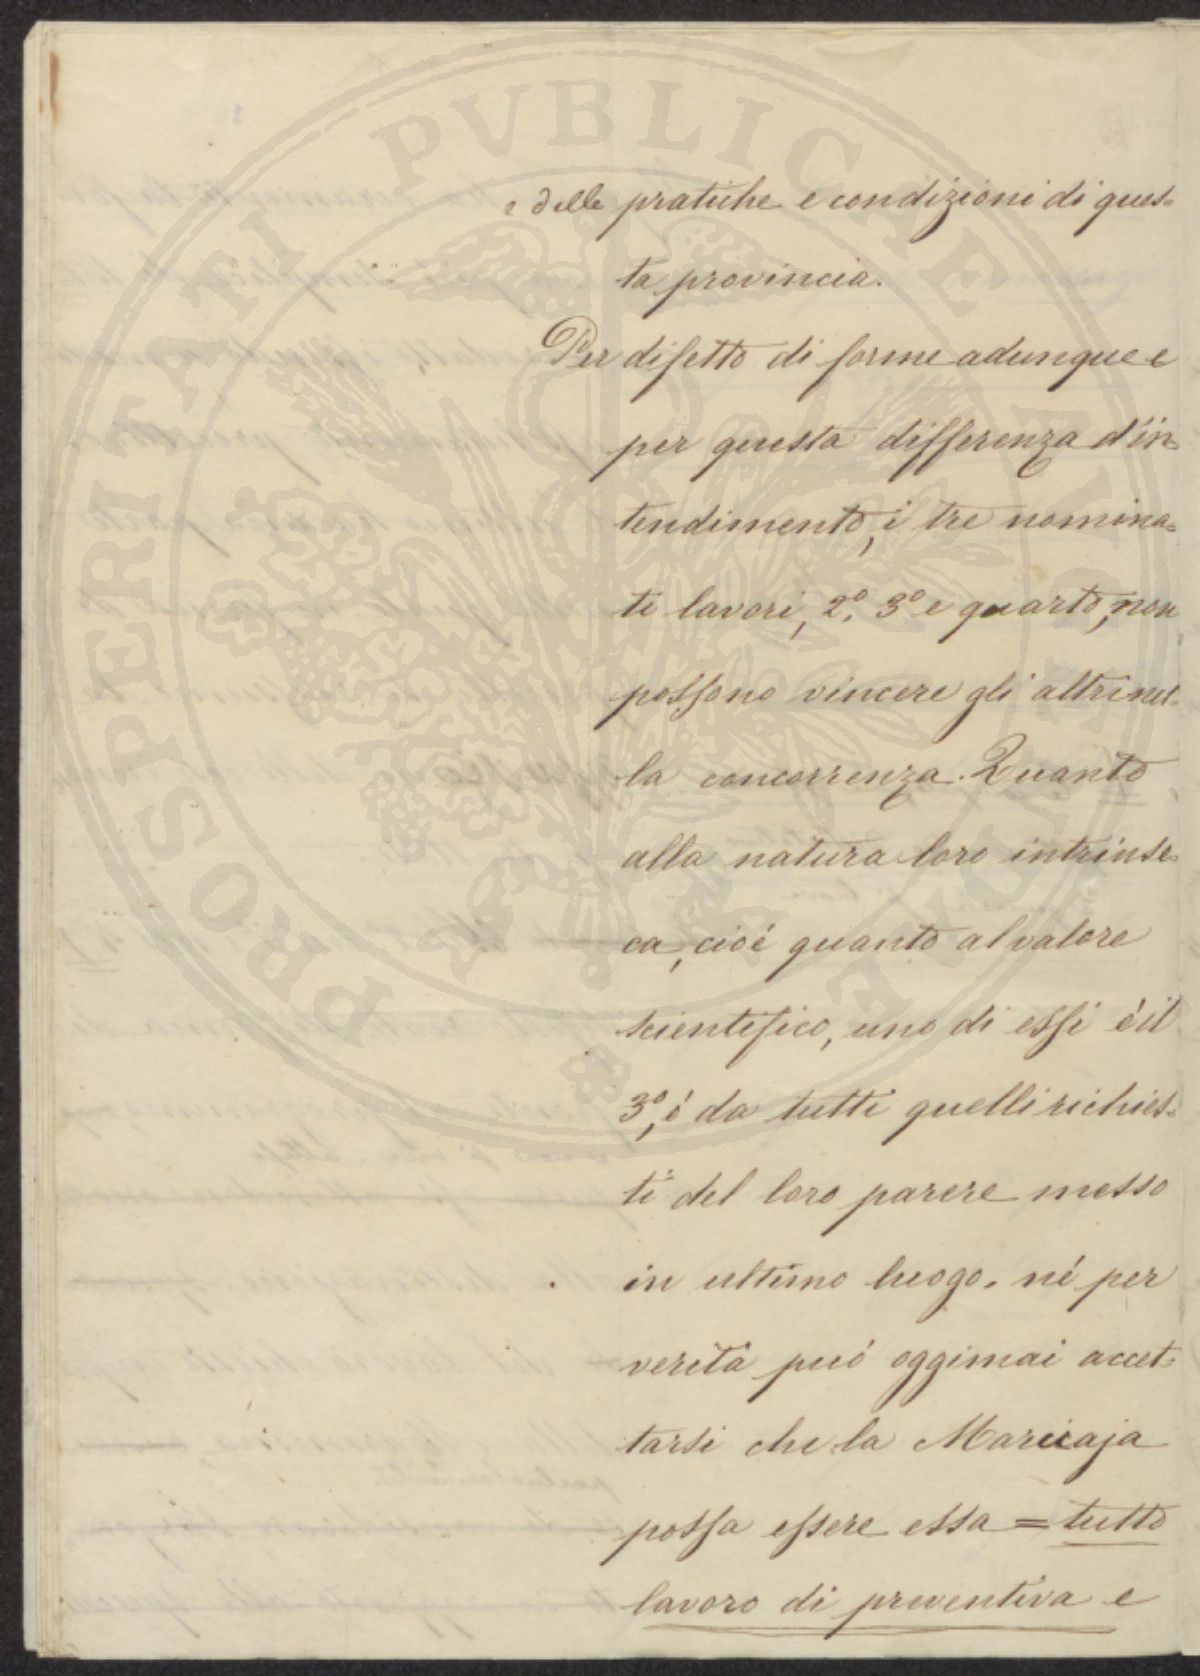 e delle pratiche e condizioni di ques=
ta provincia.
Per difetto di forme adunque e
per questa differenza d'in=
tendimento, i tre nomina=
ti lavori, 2º. 3º e quarto, non
possono vincere gli altri nel=
la concorrenza. Quanto
alla natura loro intrinse=
ca, cioé quanto al valore
scientifico, uno di essi é il
3º, é da tutti quelli richies=
ti del loro parere messo
in ultimo luogo. né per
veritá puó oggimai accet=
tarsi che la Marciaja
possa essere essa = tutto
lavoro di preventiva e
PROSPERITATI PVBLICAE AVGENDAE